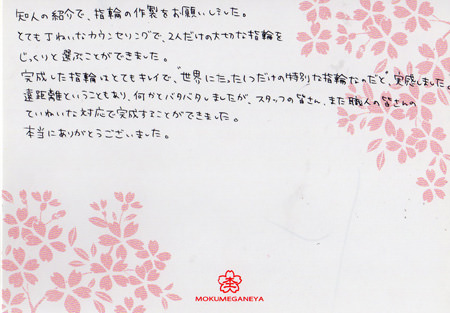 知人の紹介で、指輪の作製をお願いしました。
とても丁ねいなカウンセリングで、2人だけの大切な指輪を
じっくりと選ぶことができました。
完成した指輪はとてもキレイで、"世界にたった1つだけの特別な指輪なのだと、実感しました。
遠距離ということもあり、何かとバタバタしましたが、スタッフの皆さん、また職人の皆さんの
ていねいな対応で完成することができました。
本当にありがとうございました。
MOKUMEGANEYA